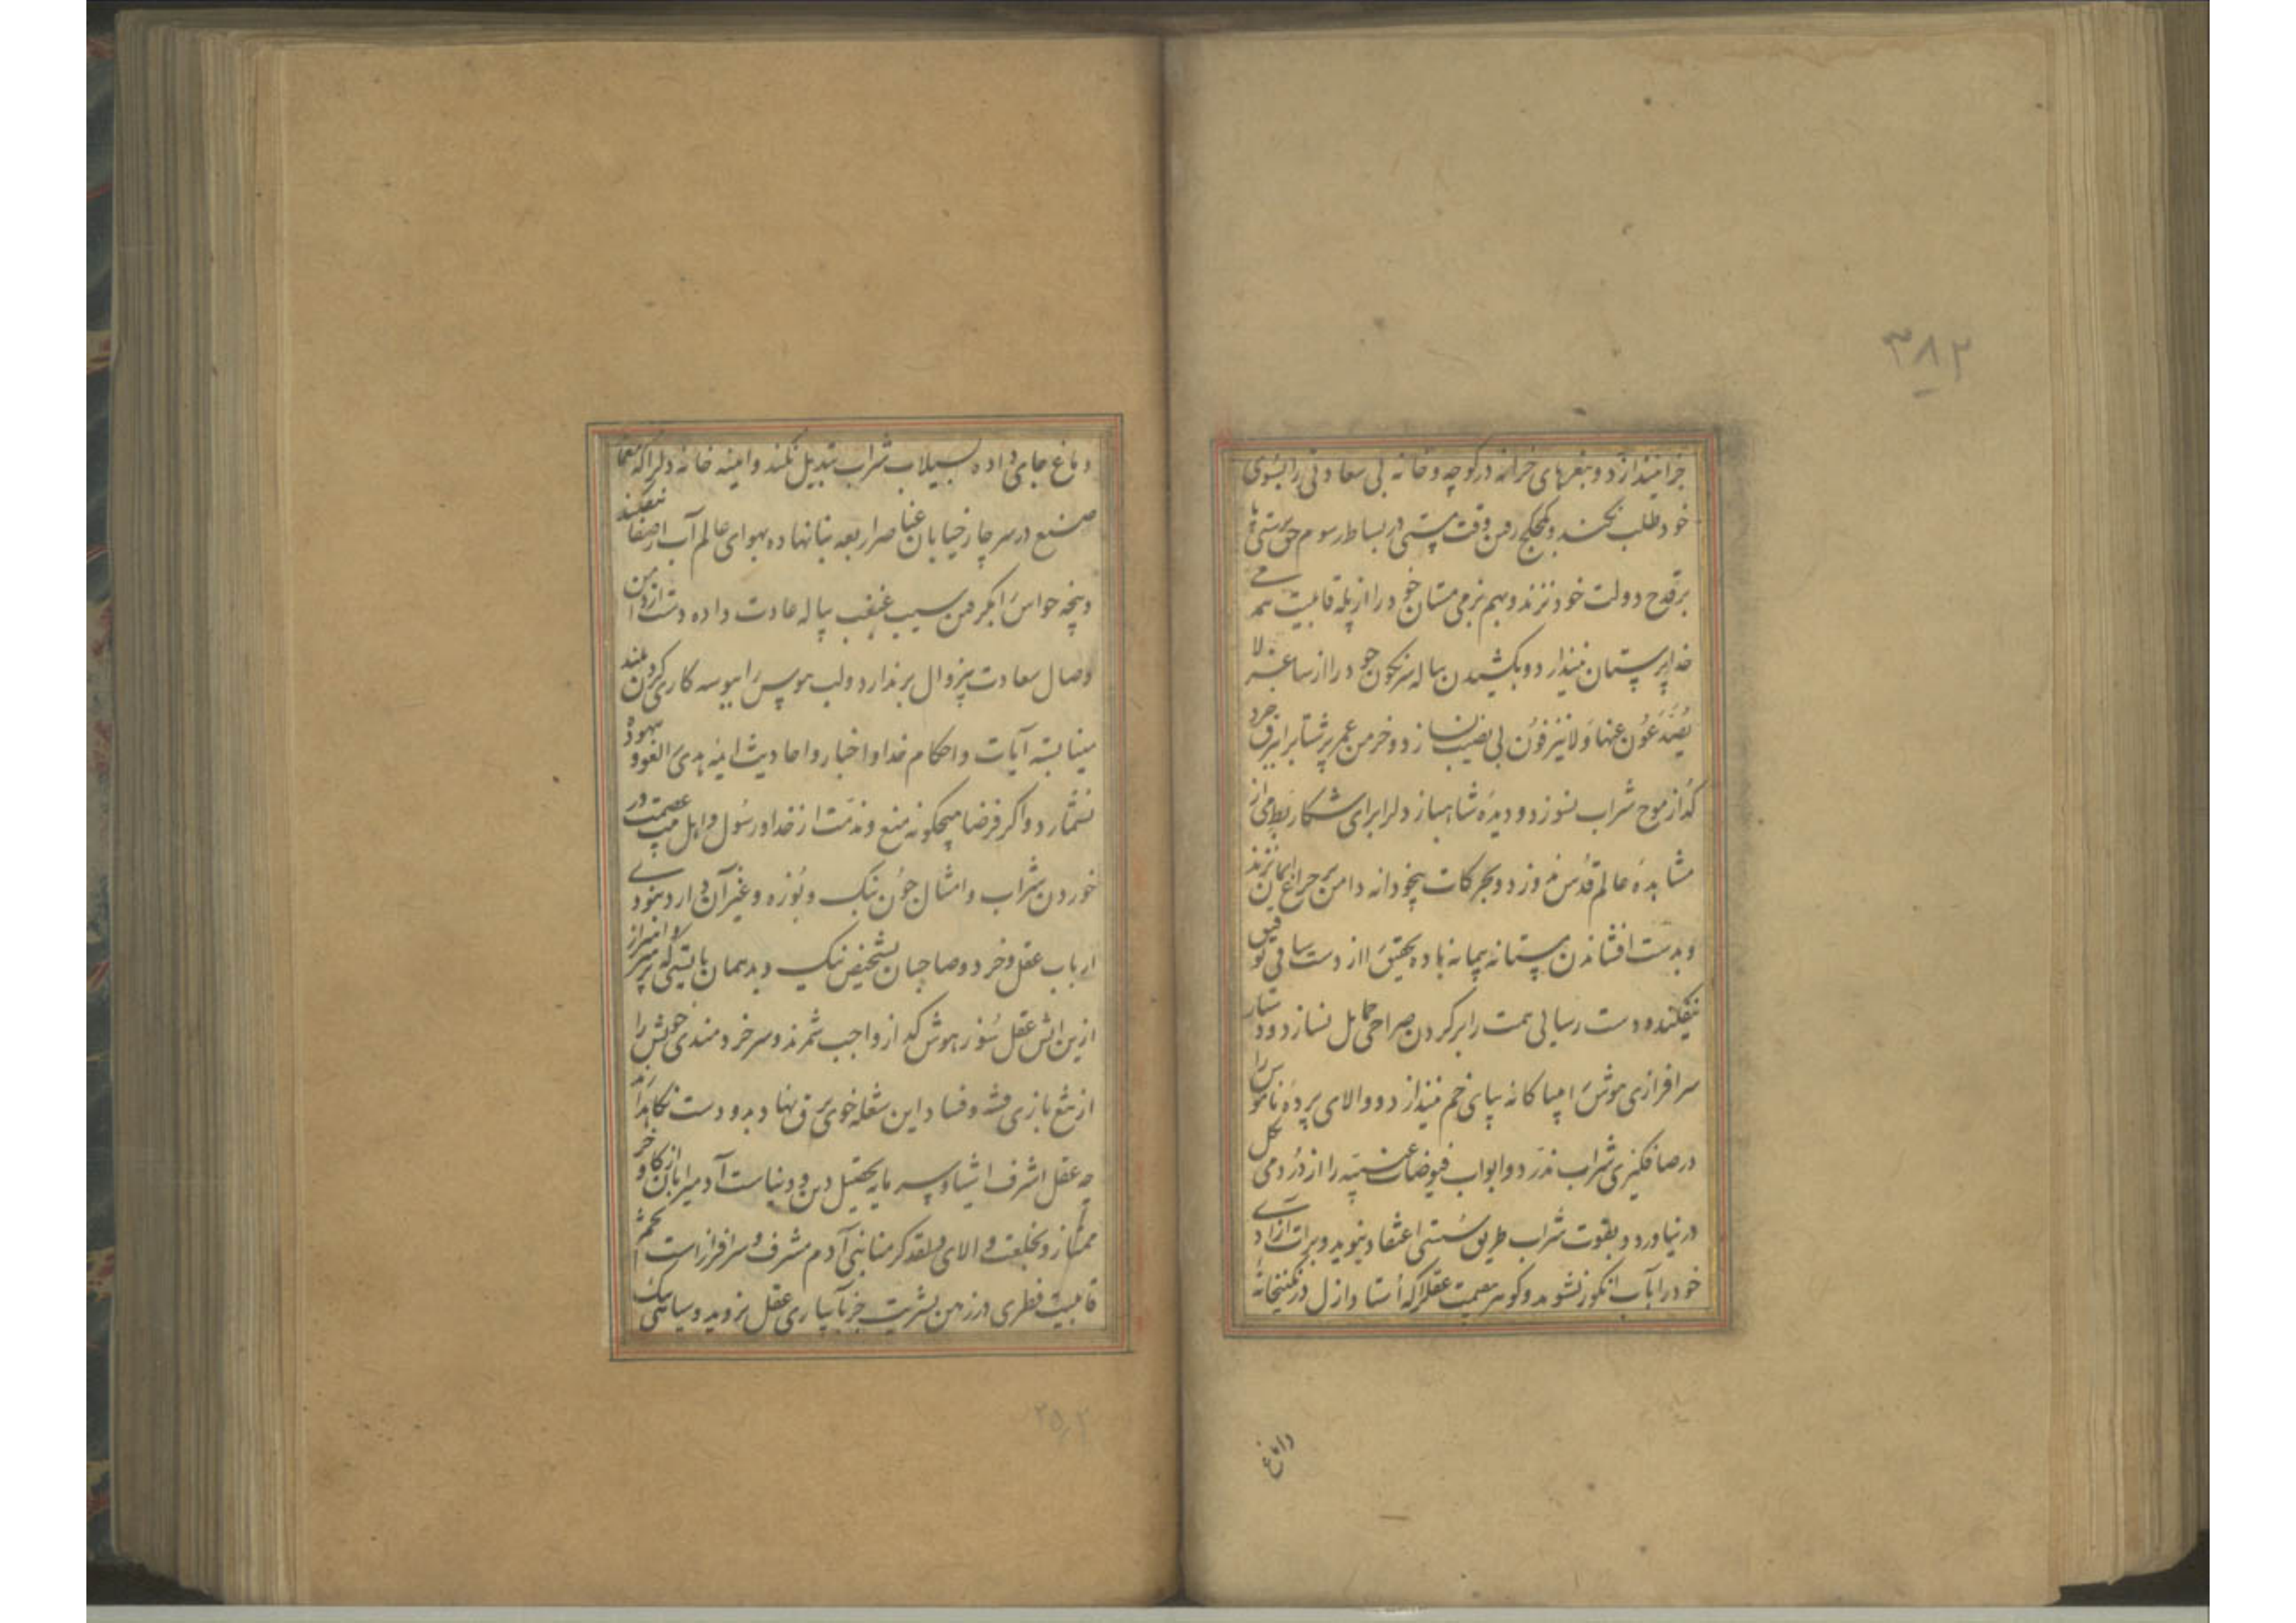 ۳۸۲
خرامیندازد و بنعرهای خرانه در کوچه و خانه بی سعادتی را بسوی
خود طلب نکند و کجکج رفتن وقت مستی در بساط رسوم حق پرستی پا
بر قدح دولت خود نزند و بهم بزمی مستان خود را از پله قابلیت بزمی
خداپرستان نیندازد و بکشیدن پیاله سرنگون خود را از ساغر لا
یُصَدَّعُونَ عنها وَلا یُنزِفُونَ بی نصیب نسازد و خرمن عمر پرشتابرا ببرق خرد
گداز موج شراب نسوزد و دیده شاهباز دلرا برای شکار بط می از
مشاهده عالم قدس ندوزد و بحرکات بیخودانه دامن بر چراغ ایمان نزند
و بدست افشاندن مستانه پیمانه باده تحقیق را از دست ساقی توفیق
نیفکند و دست رسائی همت را بر گردن صراحی حمایل نسازد و دستار
سرافرازی هوش را بیباکانه بپای خم نیندازد و والای پرده ناموس را
در صافکیری شراب ندرد و ابواب فیوضات غیبیه را از دُردمی بکل
در نیاورد و بقوت شراب طریق سستی اعتقاد نپوید و برات آزادی
خود را بآب انکور نشوید و گوهر عصمت عقل را که استاد ازل در گنجینخانه
دماغ
دماغ جای داده بسیلاب شراب تبدیل نکند و آمینه خانه دلرا که معمار
صنع در سر چار خیابان عناصر اربعه بنا نهاده بهوای عالم آب از صفا نیفکند
و پنجه حواس را بگرفتن سیب غبغب پیاله عادت داده دست از دامن
وصال سعادت بیزوال برندارد و لب هوس را ببوسه کاری گردن بلند
مینا بسته آیات و احکام خدا و اخبار و احادیث ائمه هدی را لغو و بیهوده
نشمارد و اگر فرضا هیچگونه منع و مذمت از خدا و رسول و اهل بیت عصمت در
خوردن شراب و امثال چون بنک و بوزه و غیر آن وارد نبودی
ارباب عقل و خرد و صاحبان تشخیص نیک و بد همان بایستی که پرهیز و احتراز
ازین آتش عقل سوز هوش گداز واجب شمرند و سر خردمندی خویش را
از تیغ بازی فتنه و فساد این شعله خوی برق نهاد بدو دست نگاهدارند
چه عقل اشرف اشیا و سرمایه تحصیل دین و دنیاست آدمیرا بآن از گاو و خر
ممتاز و بخلعت والای ولقد کرمنا بنی آدم مشرف و سرافراز است تخم
قابلیت فطری در زمین بشریت جز بآبیاری عقل نروید و سیاهی
۲۵۲